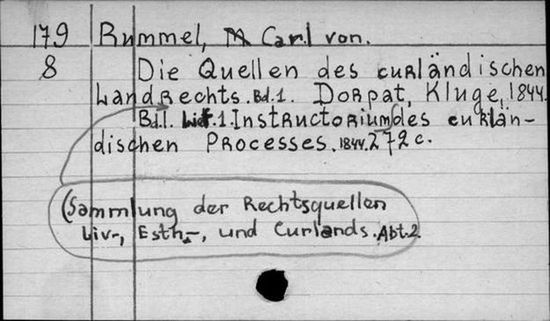 179 Rummel, Carl von.
8 Die Quellen des curländischen
Landrechts. Bd.1. Dorpat, Kluge, 1844.
Bd.1. Lief.1 Instructorium des curlän-
dischen Processes. 1844. 272 c.
(Sammlung der Rechtsquellen
Liv-, Esth-, und Curlands. Abt.2